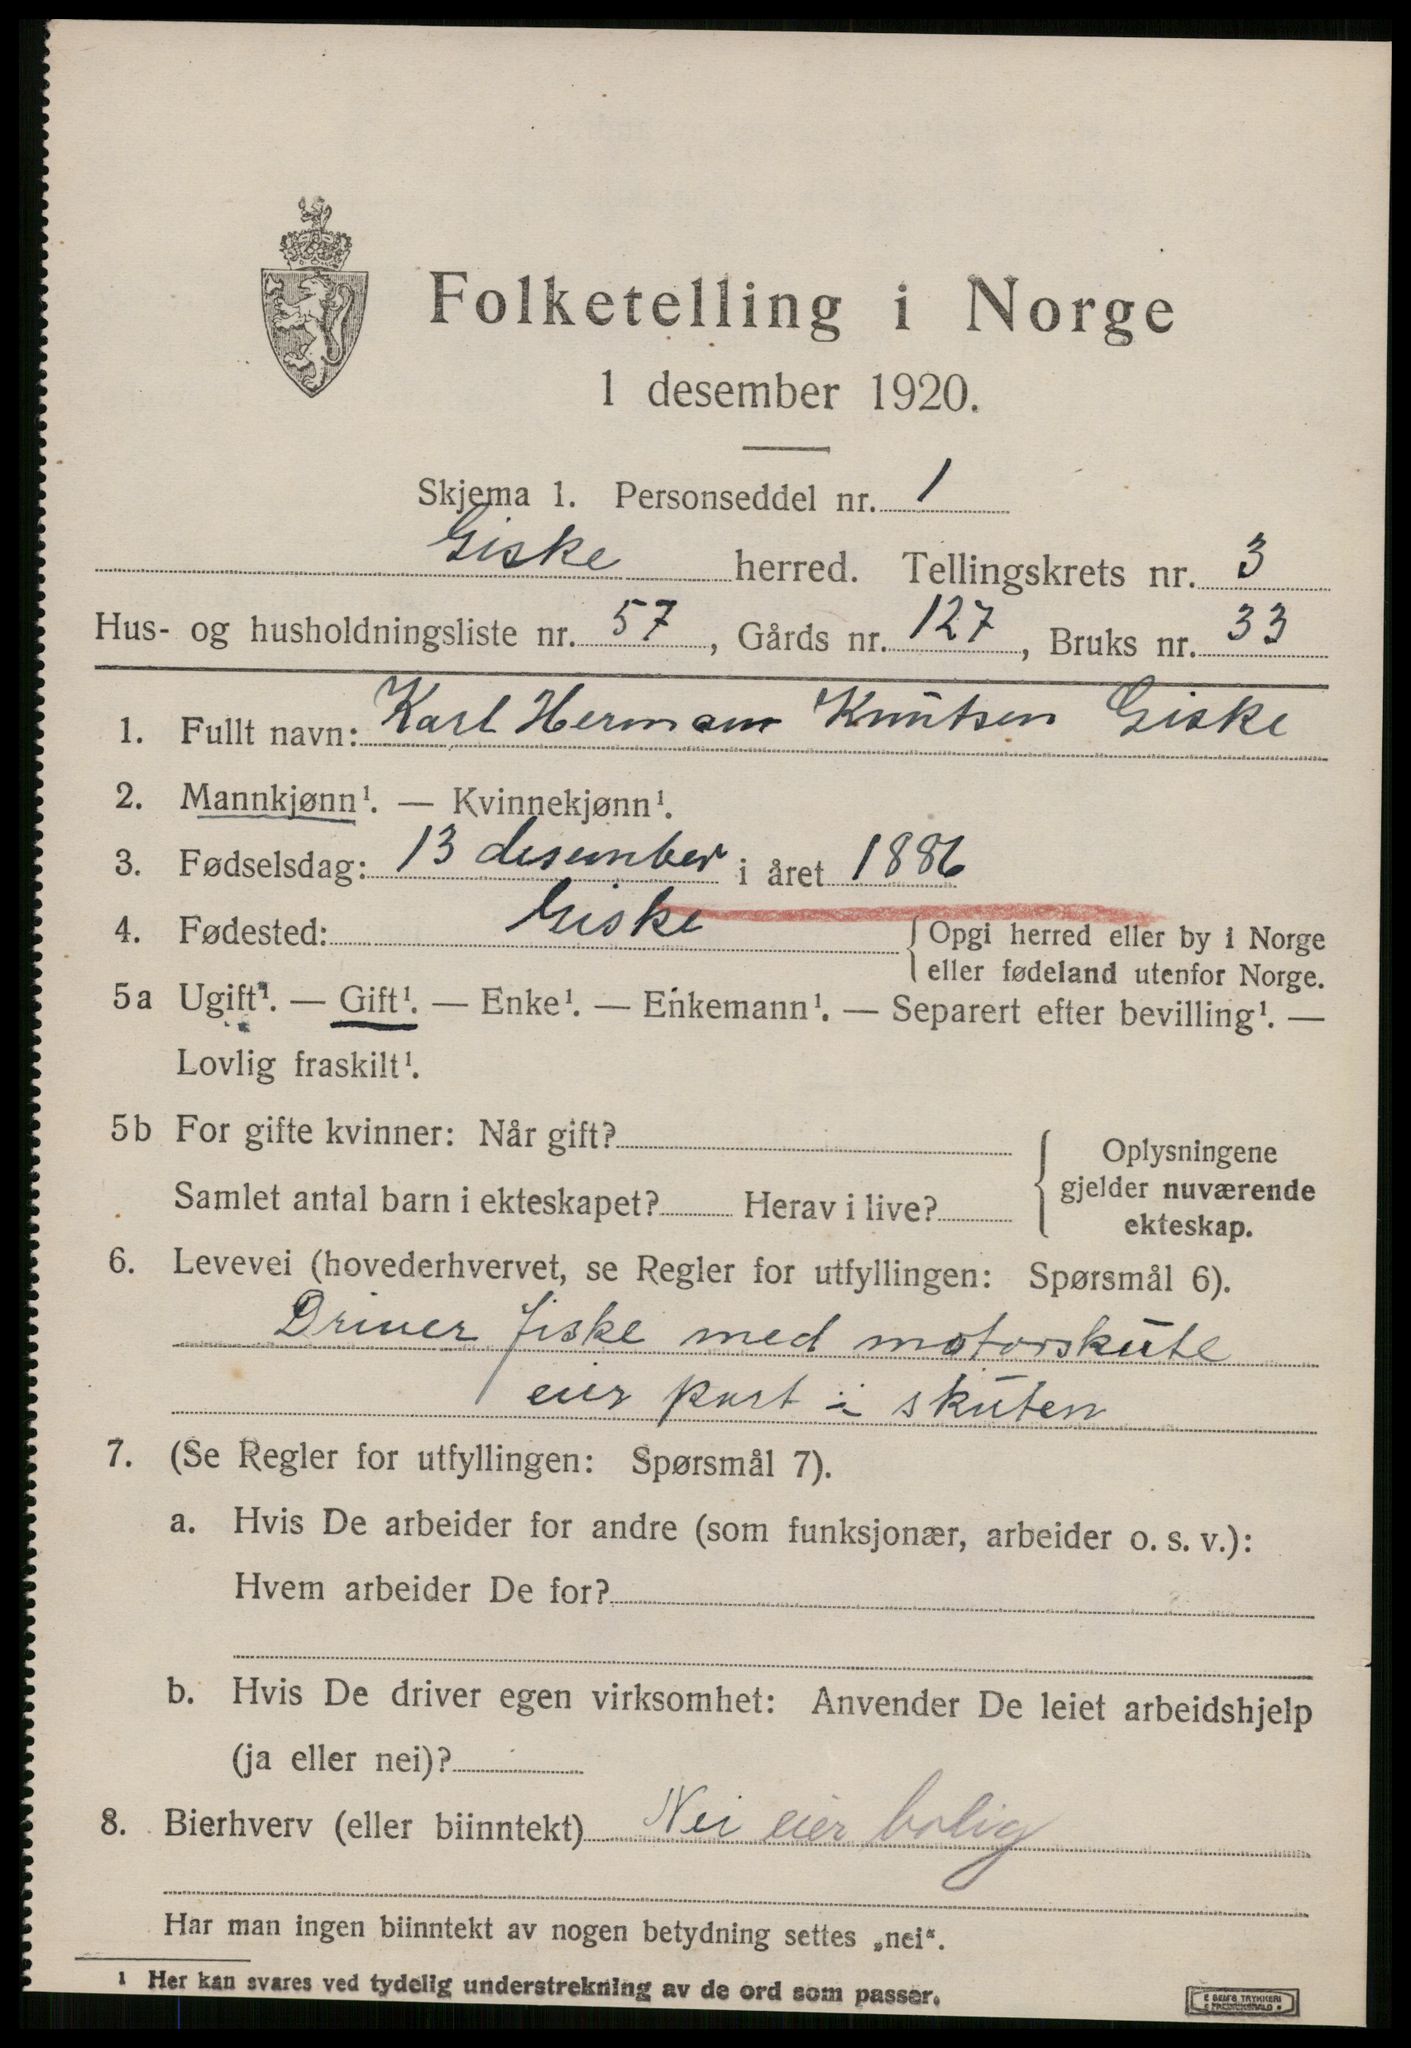 Folketelling i Norge
1 desember 1920.
Skjema 1. Personseddel nr. 1
Giske herred. Tellingskrets nr. 3
Hus- og husholdningsliste nr. 57, Gårds nr. 127, Bruks nr. 33
1. Fullt navn: Karl Herman Knutsen Giske
2. Mannkjønn¹. — Kvinnekjønn¹.
3. Fødselsdag: 13 desember i året 1886
4. Fødested: Giske { Opgi herred eller by i Norge
eller fødeland utenfor Norge.
5a Ugift¹. — Gift¹. — Enke¹. — Enkemann¹. — Separert efter bevilling¹. —
Lovlig fraskilt¹.
5b For gifte kvinner: Når gift?
Samlet antal barn i ekteskapet? Herav i live?
{ Oplysningene
gjelder nuværende
ekteskap.
6. Levevei (hovederhvervet, se Regler for utfyllingen: Spørsmål 6).
Driver fiske med motorskute
eier part i skuten
7. (Se Regler for utfyllingen: Spørsmål 7).
a. Hvis De arbeider for andre (som funksjonær, arbeider o. s. v.):
Hvem arbeider De for?
b. Hvis De driver egen virksomhet: Anvender De leiet arbeidshjelp
(ja eller nei)?
8. Bierhverv (eller biinntekt) Nei eier bolig
Har man ingen biinntekt av nogen betydning settes „nei“.
¹ Her kan svares ved tydelig understrekning av de ord som passer.
E SEMS TRYKKERI
FREDRIKSHALD